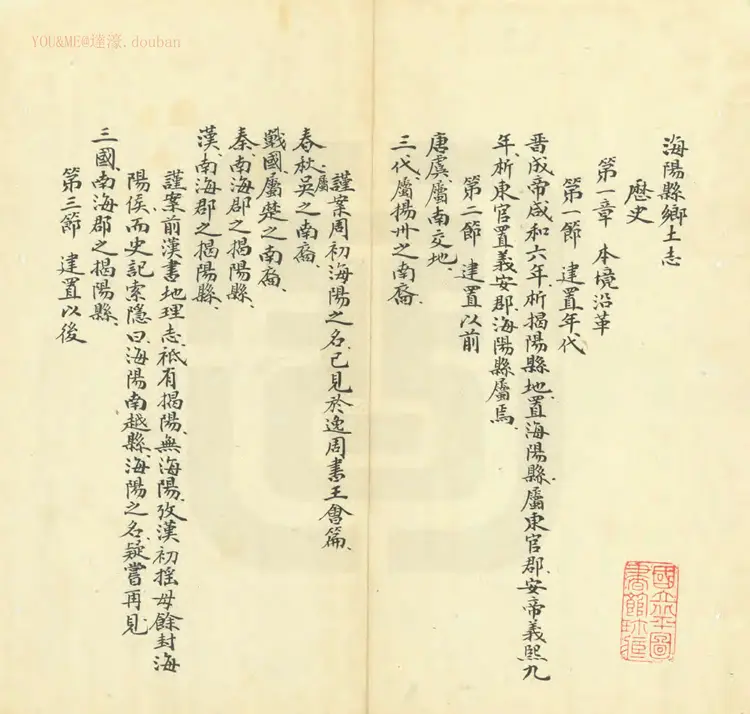 YOU&ME@達濠.douban
海陽縣鄉土志
歷史
第一章 本境沿革
第一節 建置年代
晉成帝咸和六年、析揭陽縣地、置海陽縣、屬東官郡、安帝義熙九
年、析東官置義安郡、海陽縣屬焉、
第二節 建置以前
唐虞、屬南交地、
三代、屬揚州之南裔、
謹案周初海陽之名、已見於逸周書王會篇、
春秋、屬吳之南裔、
戰國、屬楚之南裔、
秦、南海郡之揭陽縣、
漢、南海郡之揭陽縣、
謹案前漢書地理志、祗有揭陽、無海陽、攷漢初搖毋餘封海
陽侯、而史記索隱曰、海陽南越縣、海陽之名、疑嘗再見、
三國、南海郡之揭陽縣、
第三節 建置以後
國立北平圖
書館收藏